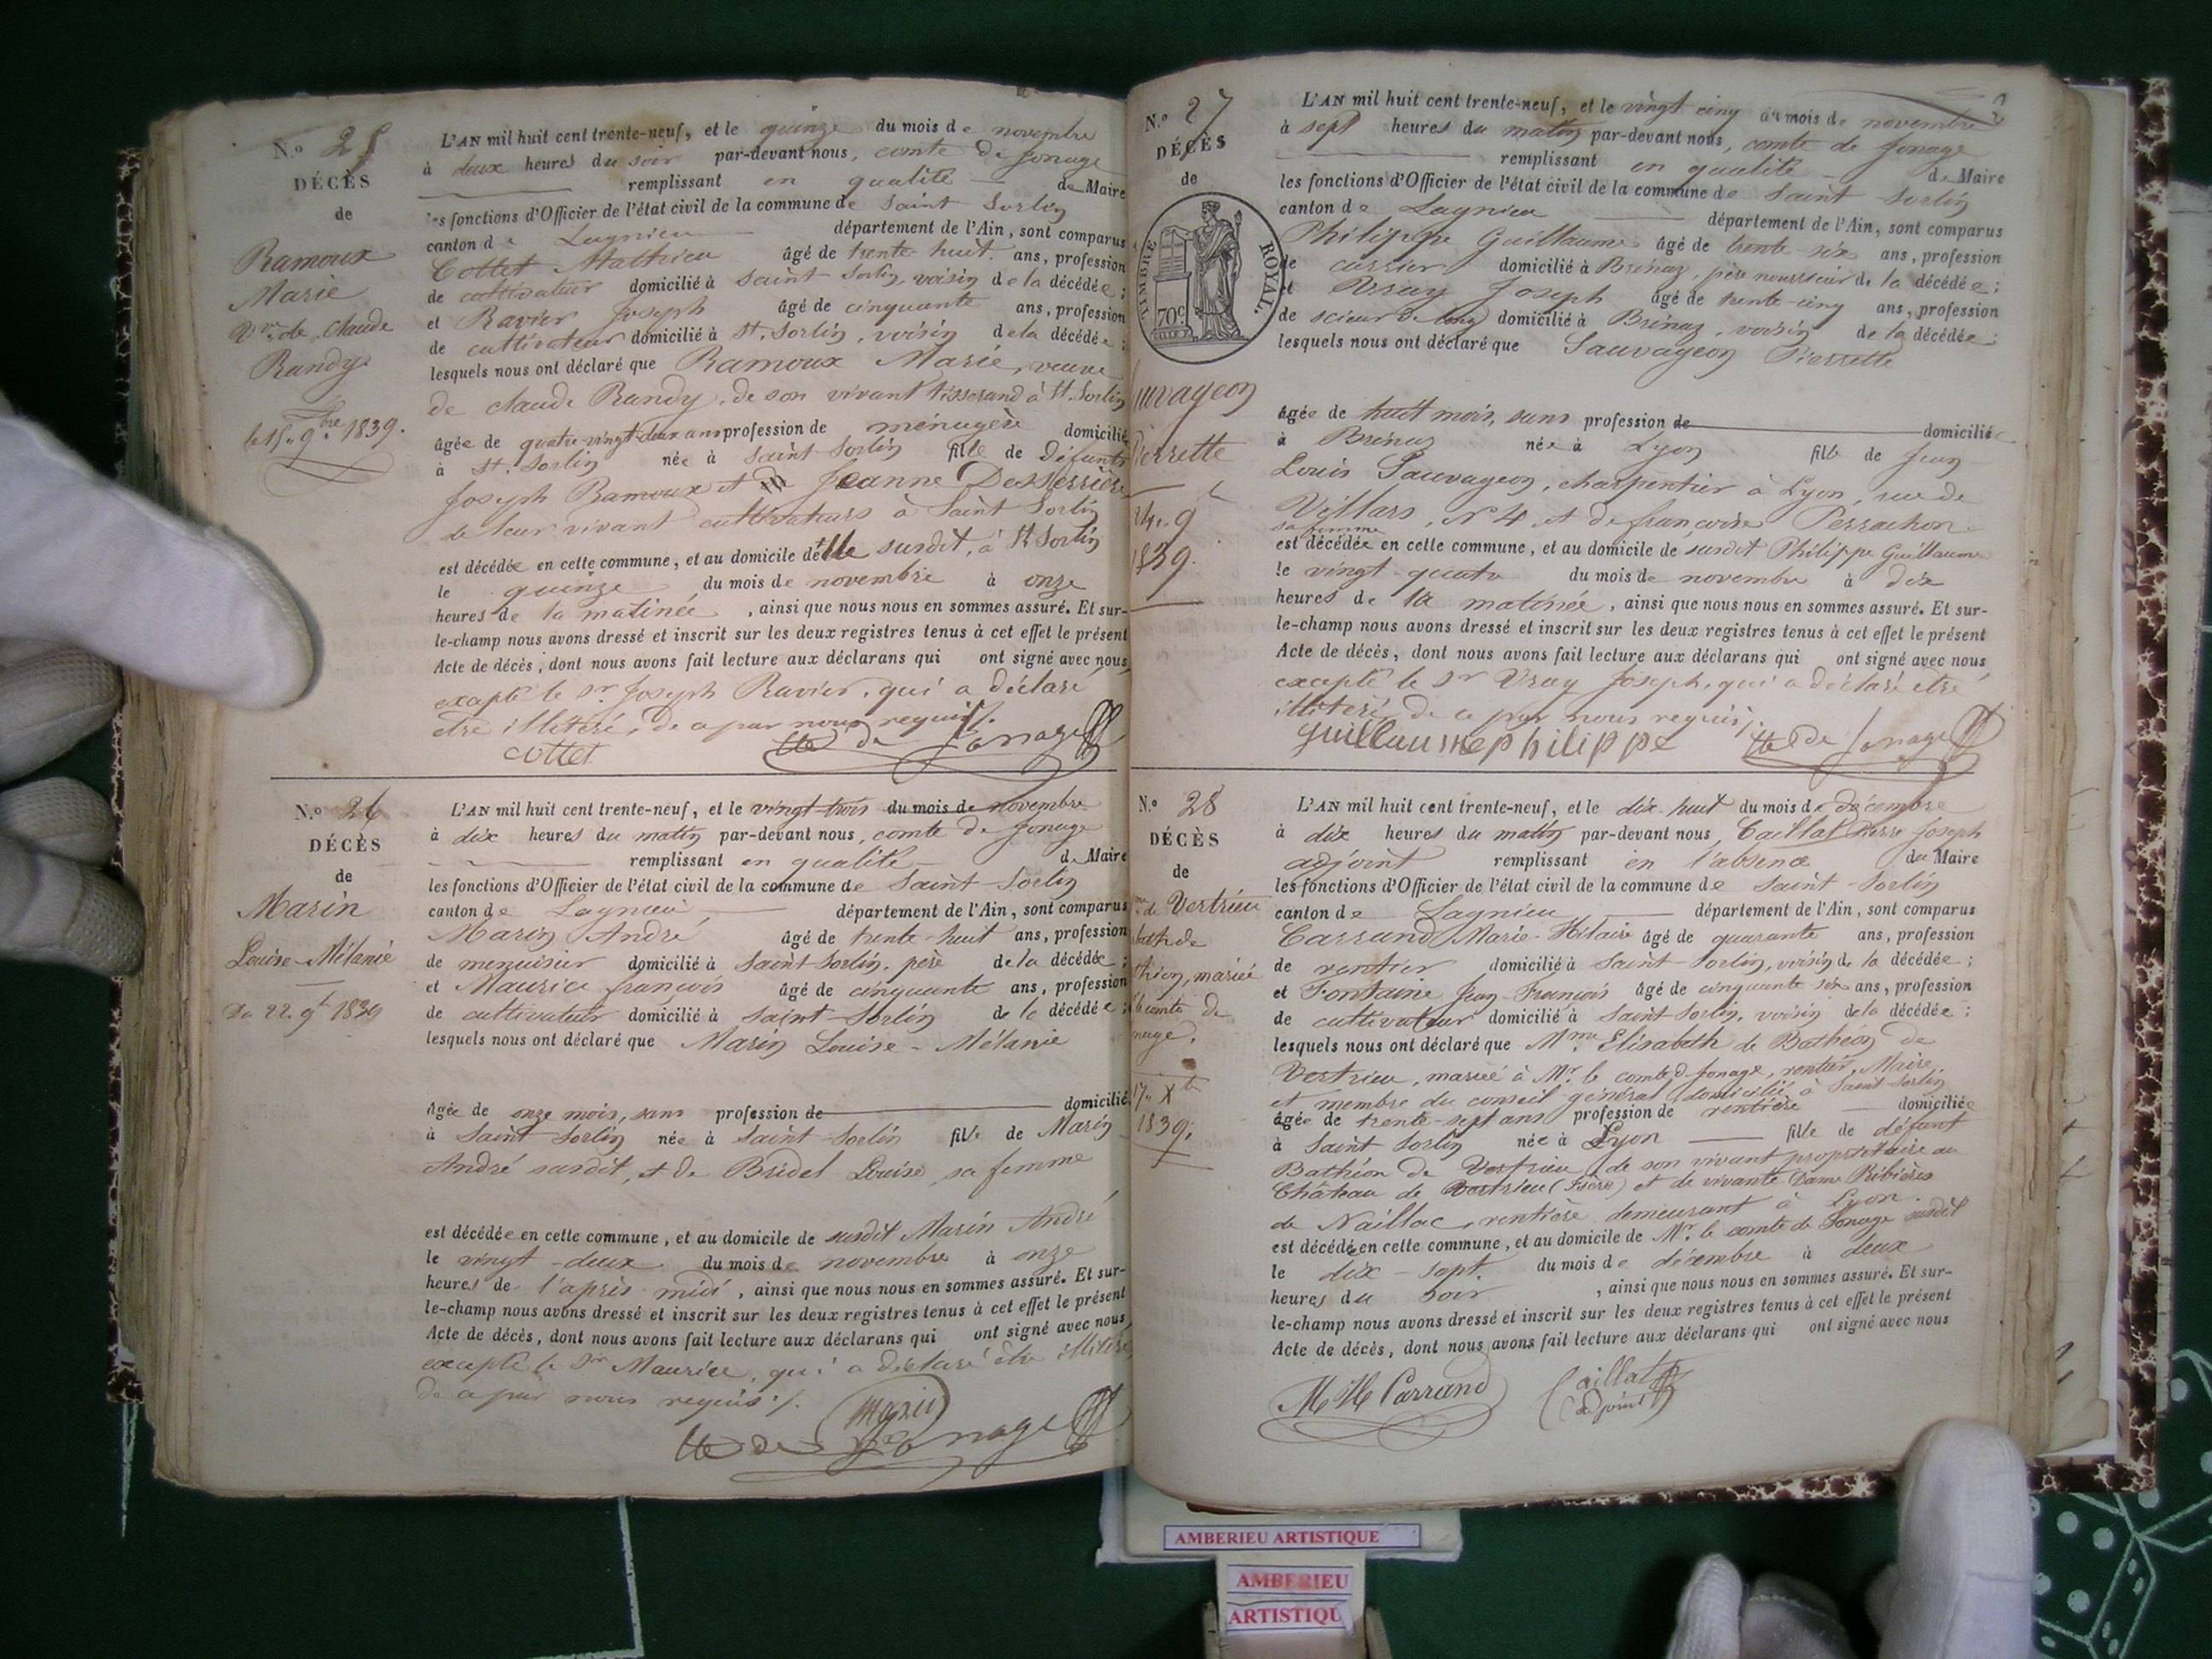 N.o 25
DÉCÈS
de
Ramoux
Marie
Vve de Claude
Randy
le 15 9bre 1839.
L'AN mil huit cent trente-neuf, et le quinze du mois de novembre
à deux heures du soir par-devant nous, comte de Jonage
remplissant en qualité de Maire
les fonctions d'Officier de l'état civil de la commune de Saint Sorlin
canton de Lagnieu département de l'Ain, sont comparus
Cottet Mathieu âgé de trente huit ans, profession
de cultivateur domicilié à Saint Sorlin, voisin de la décédée;
et Ravier Joseph âgé de cinquante ans, profession
de cultivateur domicilié à St. Sorlin, voisin de la décédée;
lesquels nous ont déclaré que Ramoux Marie, veuve
de claude Randy, de son vivant tisserand à St. Sorlin
âgée de quatre vingt deux ans profession de ménagère domicilié
à St. Sorlin née à Saint Sorlin fille de défunts
Joseph Ramoux et Jeanne Desserrière
de leur vivant cultivateurs à Saint Sorlin
est décédée en cette commune, et au domicile de susdit, à St Sorlin
le quinze du mois de novembre à onze
heures de la matinée, ainsi que nous nous en sommes assuré. Et sur-
le-champ nous avons dressé et inscrit sur les deux registres tenus à cet effet le présent
Acte de décès, dont nous avons fait lecture aux déclarans qui ont signé avec nous,
excepté le Sr. Joseph Ravier, qui a déclaré
être illitéré, de ce par nous requis /.
cottet Cte de Jonage
N.o 26
DÉCÈS
de
Marin
Louise-Mélanie
Du 22. 9bre 1839
L'AN mil huit cent trente-neuf, et le vingt-trois du mois de novembre
à dix heures du matin par-devant nous, comte de Jonage
remplissant en qualité de Maire
les fonctions d'Officier de l'état civil de la commune de Saint-Sorlin
canton de Lagnieu, département de l'Ain, sont comparus
Marin André âgé de trente-huit ans, profession
de menuisier domicilié à Saint Sorlin, père de la décédée;
et Maurice françois âgé de cinquante ans, profession
de cultivateur domicilié à Saint-Sorlin de la décédée;
lesquels nous ont déclaré que Marin Louise-Mélanie
âgée de onze mois, sans profession de domicilié
à Saint Sorlin née à Saint-Sorlin fille de Marin
André susdit, et de Bridel Louise, sa femme
est décédée en cette commune, et au domicile de susdit Marin André
le vingt-deux du mois de novembre à onze
heures de l'après midi, ainsi que nous nous en sommes assuré. Et sur-
le-champ nous avons dressé et inscrit sur les deux registres tenus à cet effet le présent
Acte de décès, dont nous avons fait lecture aux déclarans qui ont signé avec nous
excepté le Sr Maurice, qui a déclaré être illitéré,
de ce par nous requis /.
Marin
Cte de Jonage
N.o 27
DÉCÈS
de
TIMBRE ROYAL.
70c
uvageon
Pierrette
9
1839.
L'AN mil huit cent trente-neuf, et le vingt cinq du mois de novembre
à sept heures du matin par-devant nous, comte de Jonage
remplissant en qualité de Maire
les fonctions d'Officier de l'état civil de la commune de Saint Sorlin
canton de Lagnieu département de l'Ain, sont comparus
Philippe Guillaume âgé de trente six ans, profession
de carrier domicilié à Brénaz, père nourricier de la décédée;
et Vruy Joseph âgé de trente-cinq ans, profession
de scieur de long domicilié à Brénaz, voisin de la décédée;
lesquels nous ont déclaré que Sauvageon Pierrette
âgée de huit mois, sans profession de domiciliée
à Brénaz née à Lyon fille de Jean
Louis Sauvageon, charpentier à Lyon, rue de
Villars, N° 4, et de françoise Perrachon
sa femme
est décédée en cette commune, et au domicile de susdit Philippe Guillaume
le vingt-quatre du mois de novembre à dix
heures de la matinée, ainsi que nous nous en sommes assuré. Et sur-
le-champ nous avons dressé et inscrit sur les deux registres tenus à cet effet le présent
Acte de décès, dont nous avons fait lecture aux déclarans qui ont signé avec nous
excepté le Sr Vruy Joseph, qui a déclaré être
illitéré, de ce par nous requis /.
guillaumephilippe Cte de Jonage
N.o 28
DÉCÈS
de
de Vertrieu
mariée
comte de
nage.
17 Xbre
1839.
L'AN mil huit cent trente-neuf, et le dix-huit du mois de décembre
à dix heures du matin par-devant nous, Caillat Pierre Joseph
adjoint remplissant en l'absence du Maire
les fonctions d'Officier de l'état civil de la commune de Saint-Sorlin
canton de Lagnieu département de l'Ain, sont comparus
Carrand Marie-Hilaire âgé de quarante ans, profession
de rentier domicilié à Saint-Sorlin, voisin de la décédée;
et Fontaine Jean-François âgé de cinquante six ans, profession
de cultivateur domicilié à Saint-Sorlin, voisin de la décédée;
lesquels nous ont déclaré que Mme Elisabeth de Bathéon de
Vertrieu, mariée à Mr. le comte d Jonage, rentier, Maire,
et membre du conseil général, domicilié à Saint Sorlin
âgée de trente-sept ans profession de rentière domiciliée
à Saint Sorlin née à Lyon fille de défunt
Bathéon de Vertrieu, de son vivant propriétaire au
Château de Vertrieu (Isère) et de vivante Dame Ribières
de Naillac, rentière demeurant à Lyon.
est décédée en cette commune, et au domicile de Mr. le comte de Jonage susdit
le dix-sept. du mois de décembre à deux
heures du soir, ainsi que nous nous en sommes assuré. Et sur-
le-champ nous avons dressé et inscrit sur les deux registres tenus à cet effet le présent
Acte de décès, dont nous avons fait lecture aux déclarans qui ont signé avec nous
M H Carrand Caillat
adjoint
AMBERIEU ARTISTIQUE
AMBERIEU
ARTISTIQU